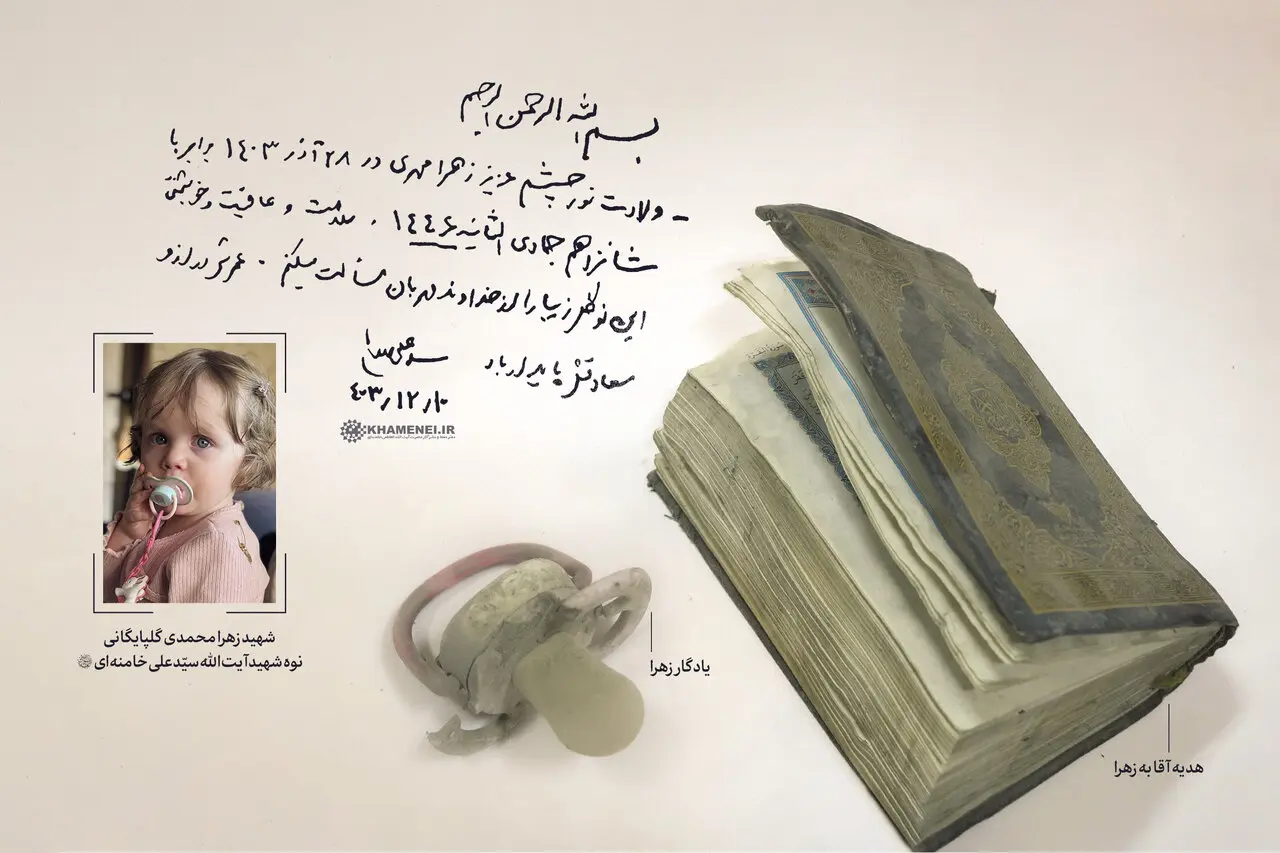 بسم الله الرحمن الرحیم
- ولادت نور چشم عزیز زهرا مهری در ۲۸ آذر ۱۴۰۳ برابر با
شانزدهم جمادی الثانیه ۱۴۴۶ . سلامت و عافیت و خوشبختی
این نوگل زیبا را از خداوند مهربان مسألت میکنم . عمرش دراز و
سعادتش پایدار باد
سید علی خامنه‌ای
۴۰۳/۱۲/۱۰
KHAMENEI.IR
شهید زهرا محمدی گلپایگانی
نوه شهید آیت‌الله سیّدعلی خامنه‌ای
یادگار زهرا
هدیه آقا به زهرا